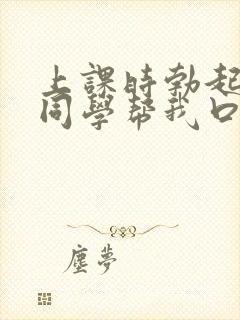 上課時勃起
同學幫我口
塵夢